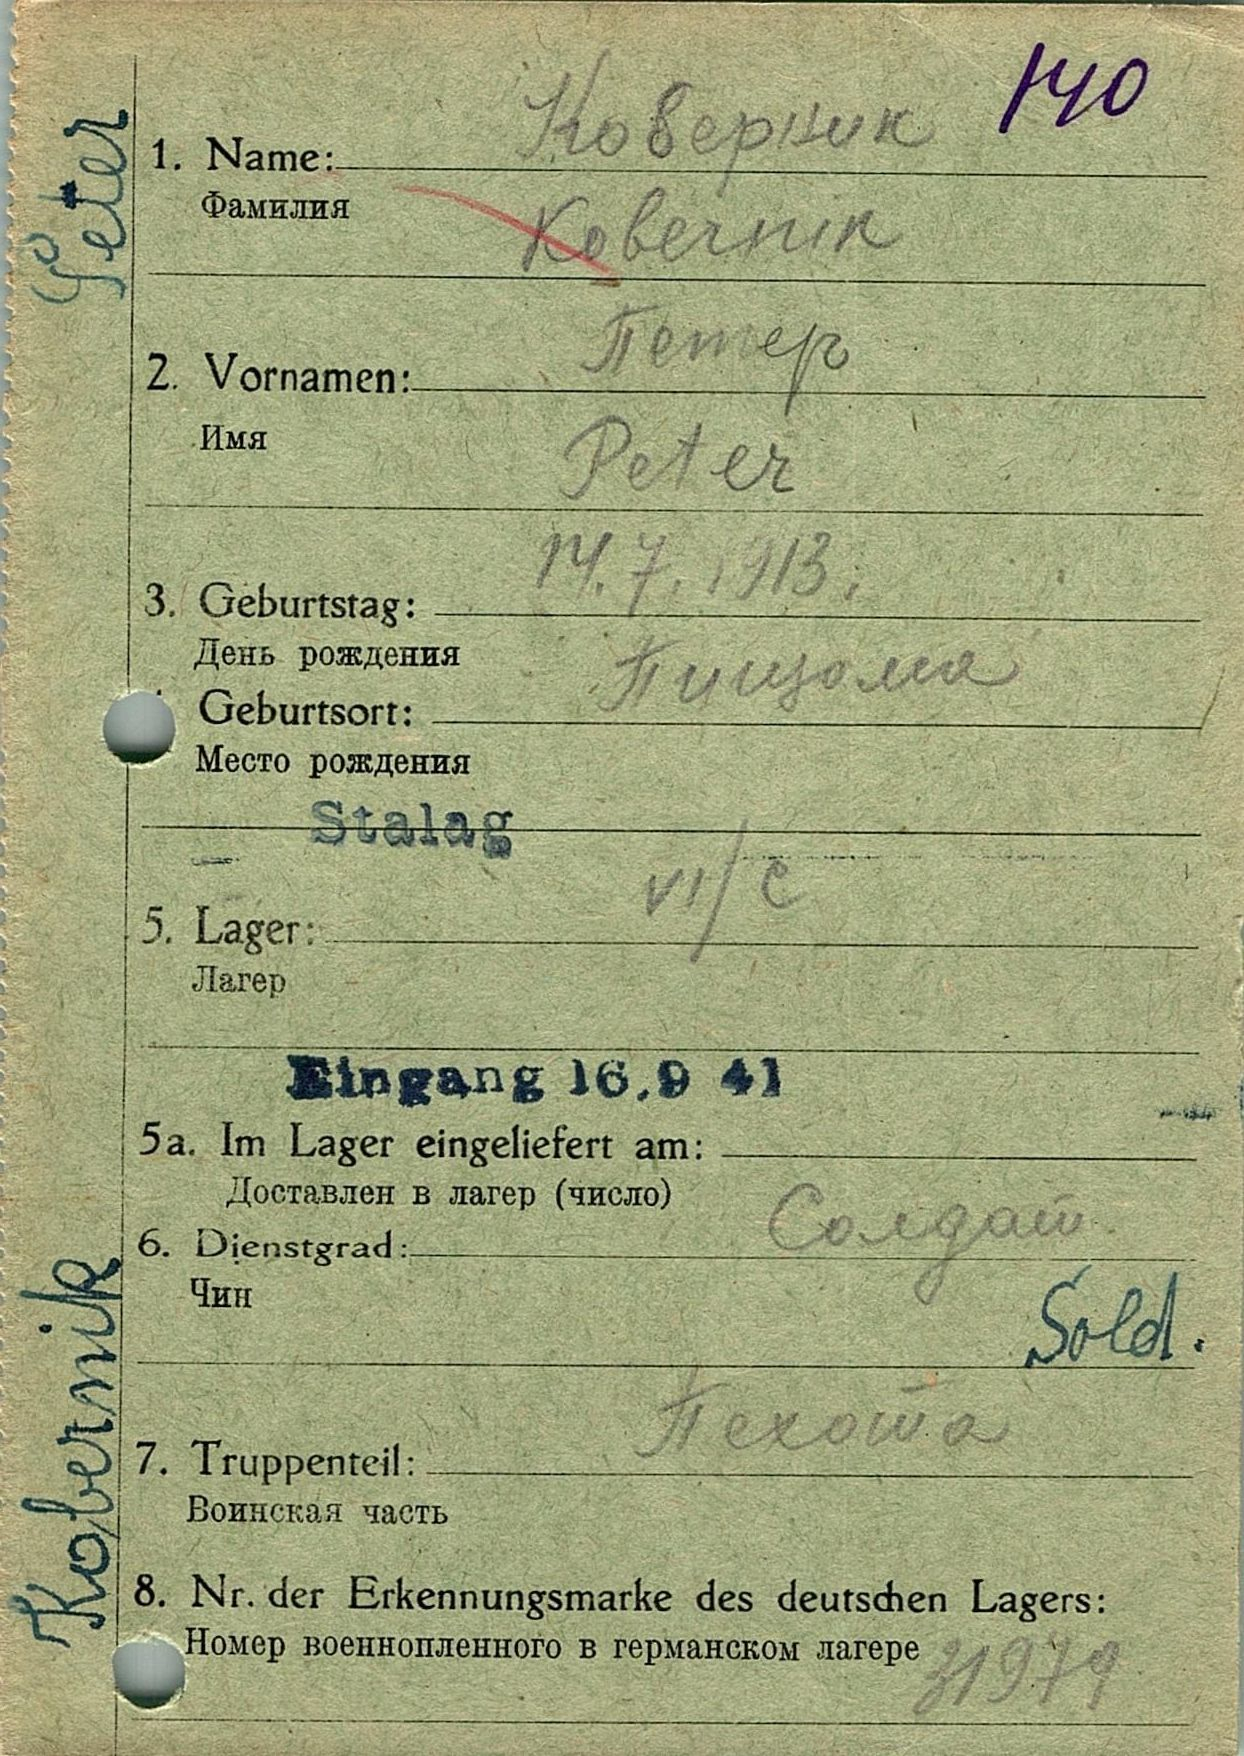 140
Коверник
1. Name:
Фамилия
Коvernik
Петер
2. Vornamen:
Имя
Peter
14.7.1913.
3. Geburtstag:
День рождения
Geburtsort:
Место рождения
Stalag
VI/C
5. Lager:
Лагер
Eingang 16.9 41
5a. Im Lager eingeliefert am:
Доставлен в лагер (число)
Солдат.
6. Dienstgrad:
Чин
Sold.
Пехота
7. Truppenteil:
Воинская часть
8. Nr. der Erkennungsmarke des deutschen Lagers:
Номер военнопленного в германском лагере 31979
Kobernik Peter